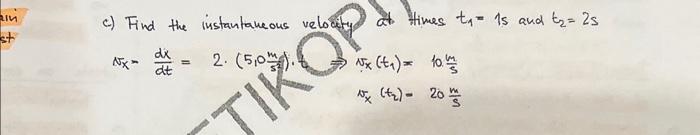 c) Find the instantaneous velocity at times t₁ = 1s and t₂ = 2s
vₓ = dx/dt = 2 · (5,0 m/s²) · t ⇒ vₓ(t₁) = 10 m/s
vₓ(t₂) = 20 m/s